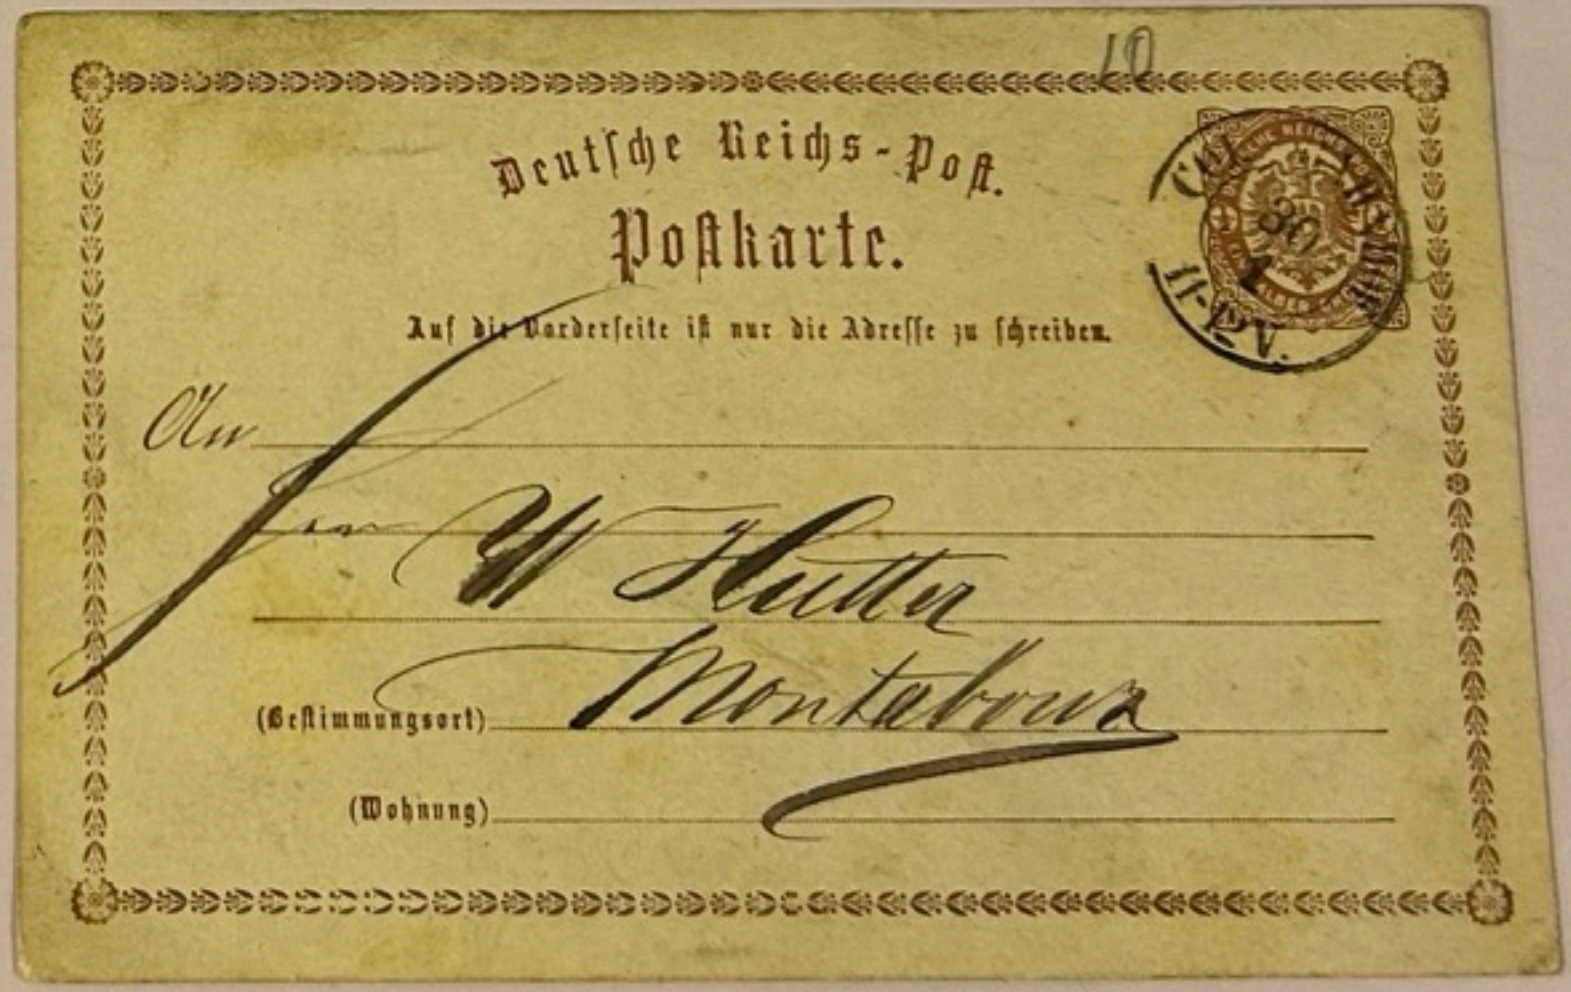 10
Deutsche Reichs-Post.
Postkarte.
Auf die Vorderseite ist nur die Adresse zu schreiben.
30
1
11-12 V.
An
W Hutter
(Bestimmungsort) Montabaur
(Wohnung)